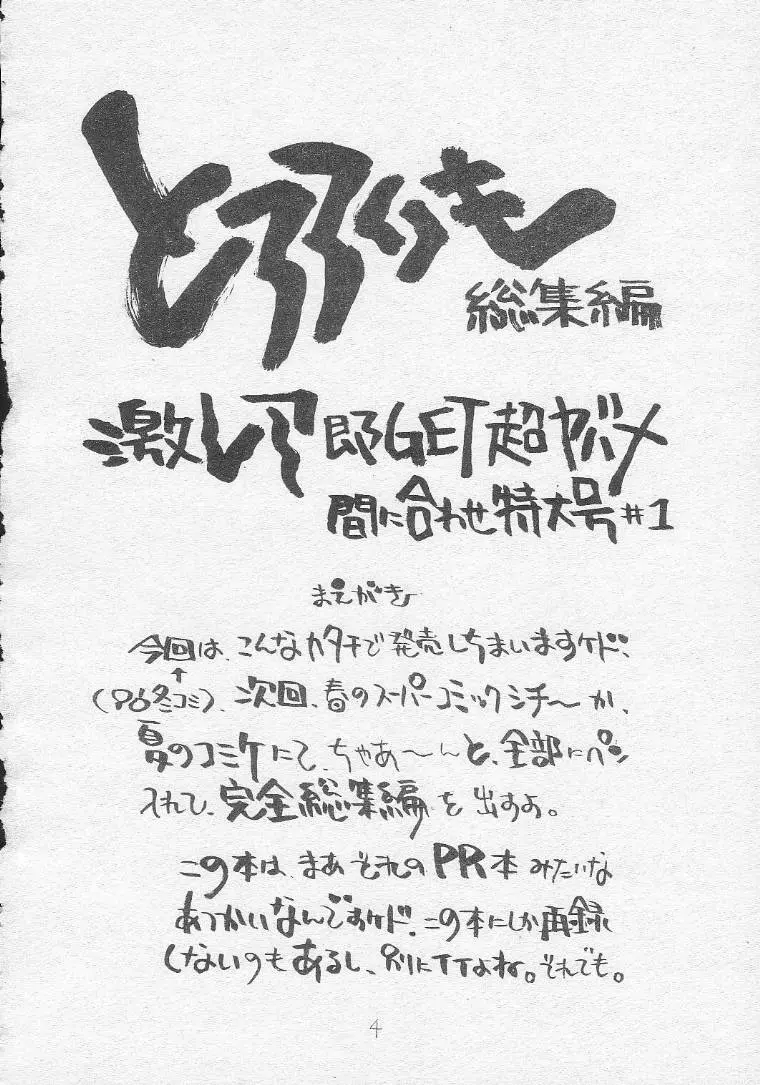 とろろいも
総集編
激レア即GET超ヤバメ
間に合わせ特大号#1
まえがき
今回は、こんなカタチで発売しちまいますケド、
↑
(96冬コミ)、次回、春のスーパーコミックシチ〜か、
夏のコミケにて、ちゃあ〜んと、全部にペン
入れて、完全総集編を出すよ。
この本は、まあそれのPR本みたいな
あつかいなんですケド、この本にしか再録
しないのもあるし、別にイイよね。それでも。
4